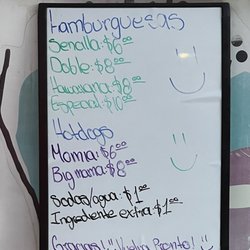 Hamburguesas
Sencilla: $6.00
Doble: $8.00
Hawaiiana: $8.00
Especial: $10.00
Hotdogs
Momia: $6.00
Big mama: $8.00
Sodas/agua: $1.00
Ingrediente extra: $1.00
Gracias! "Vuelva Pronto!"